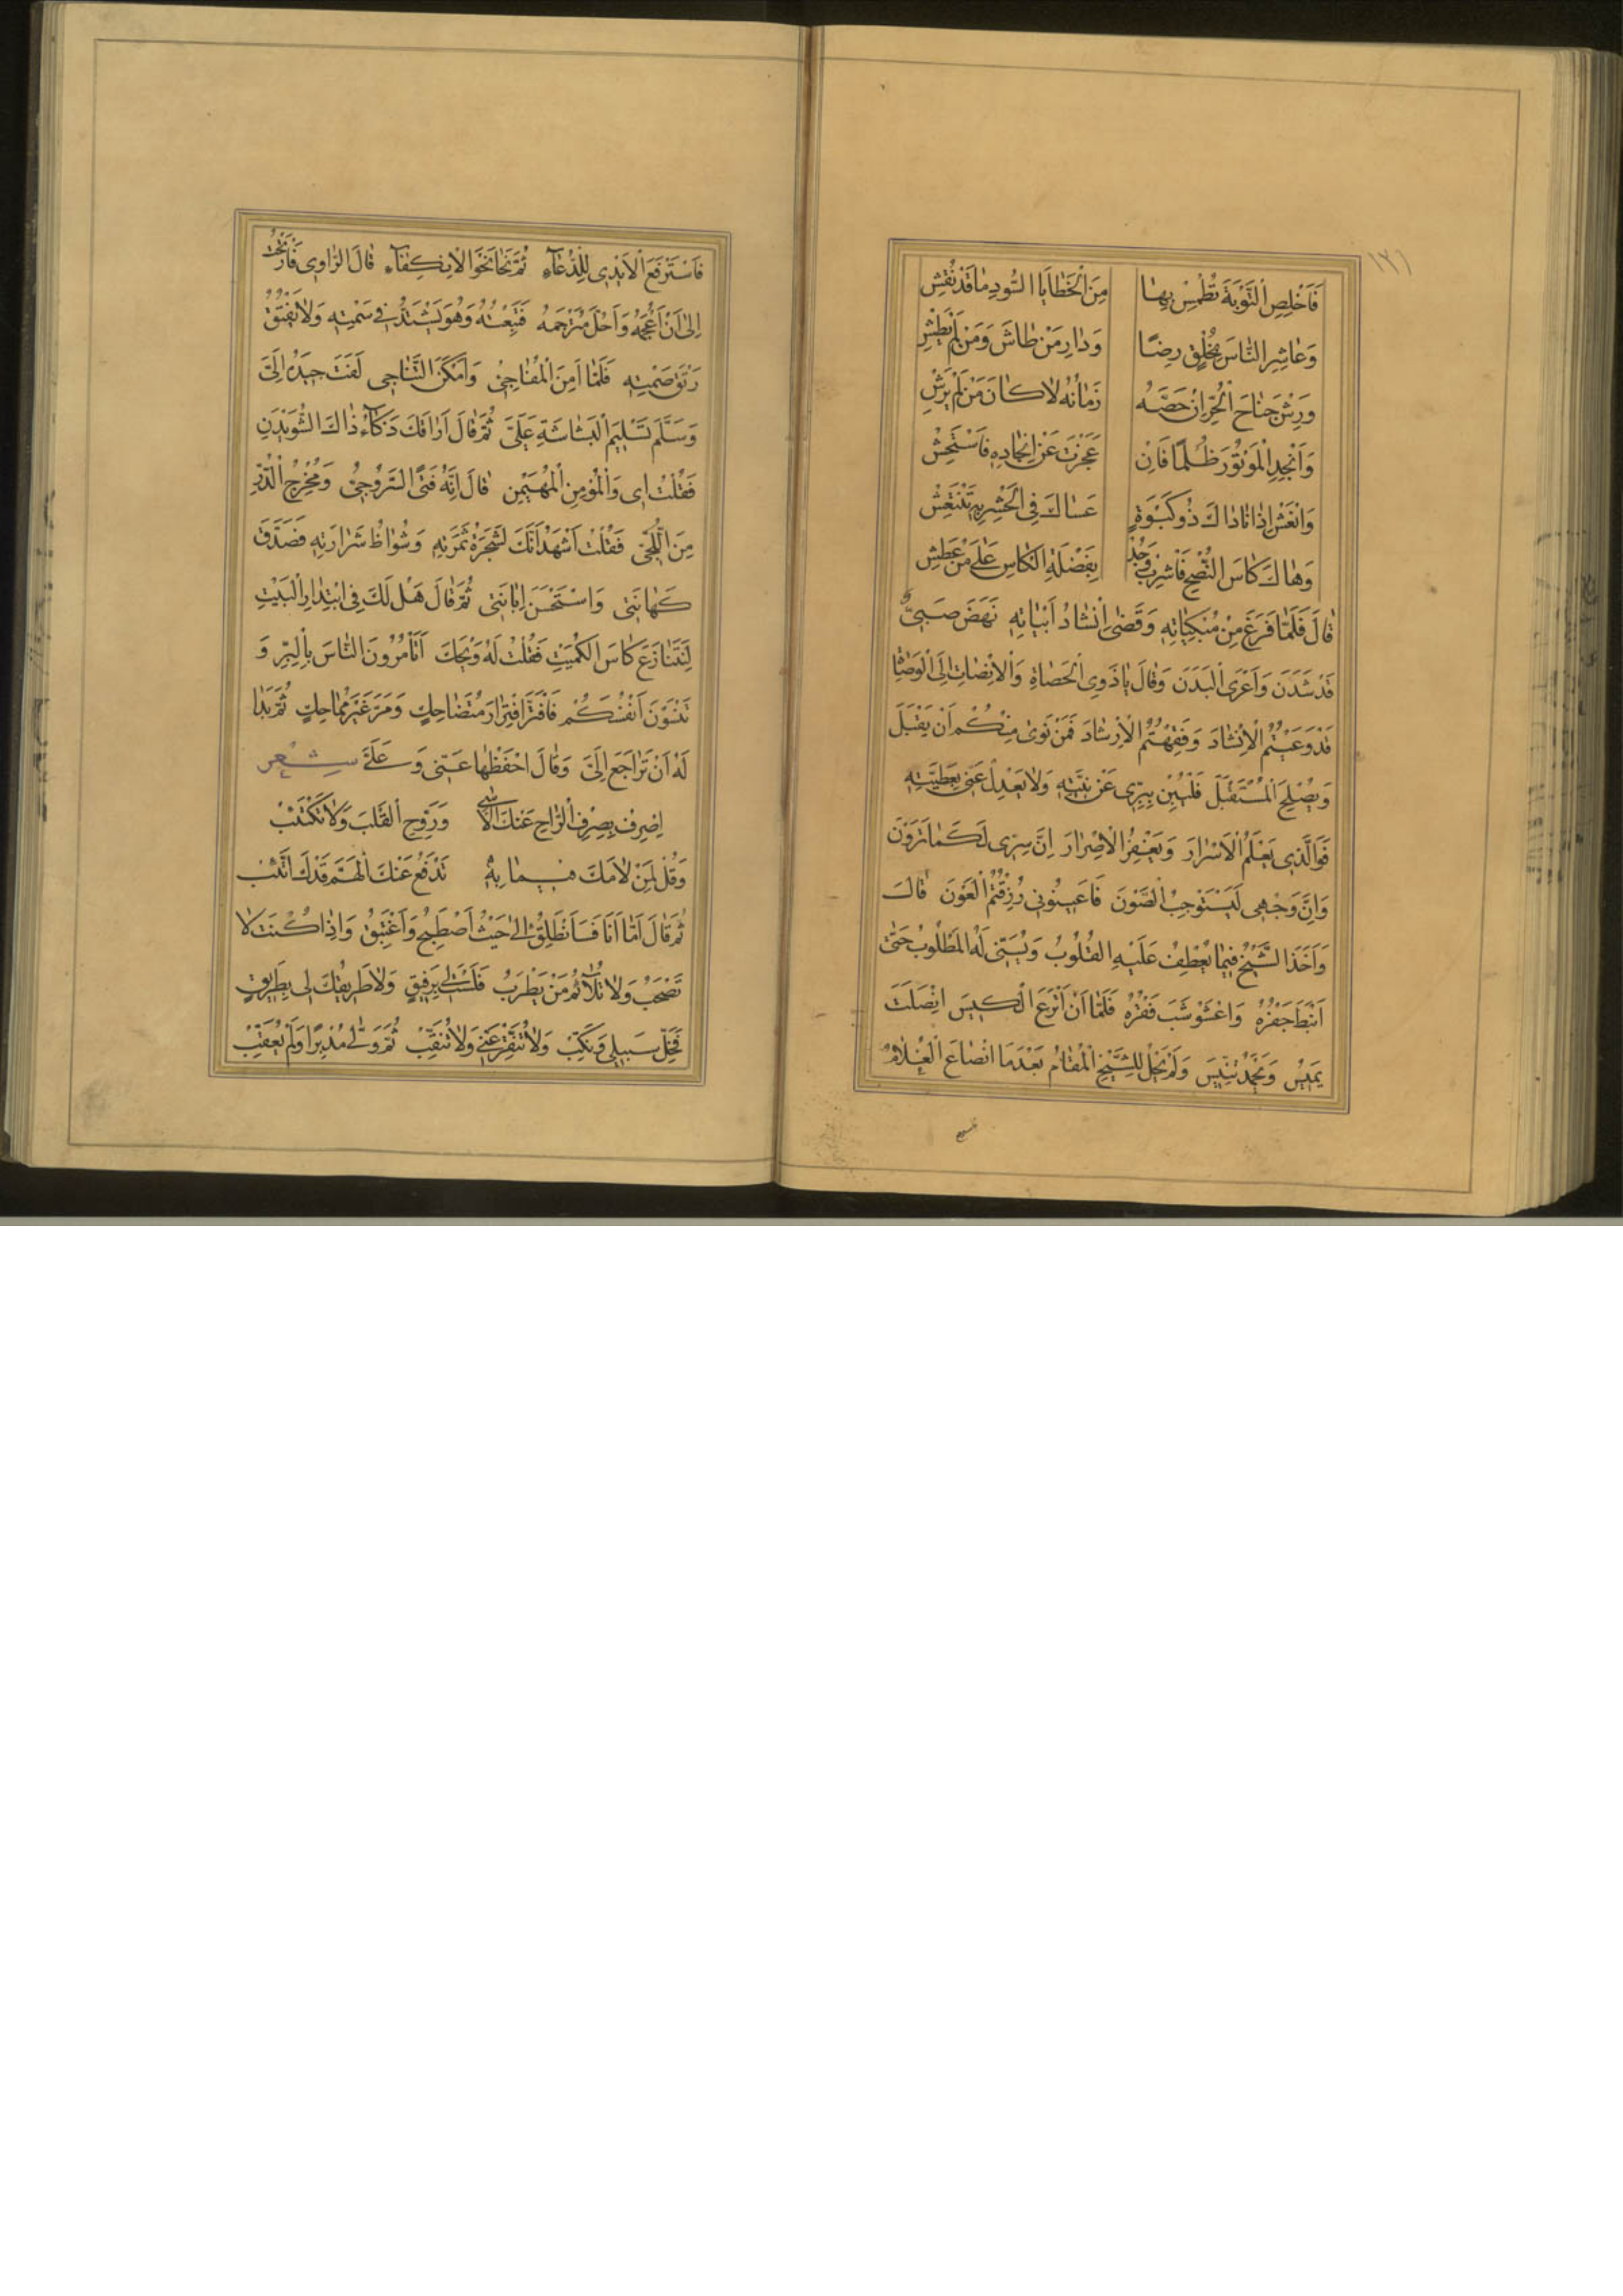 ١٢٦
فَاَخْلِصِ التَّوْبَةَ تُطْمِسْ بِهَا مِنَ الْخَطَايَا السُّودِ مَا قَدْ نُقِشْ
وَعَاشِرِ النَّاسَ بِخُلْقٍ رِضًا وَدَارِ مَنْ طَاشَ وَمَنْ لَمْ يَطِشْ
وَرِشْ جَنَاحَ الْحُرِّ اِنْ حَصَّهُ زَمَانُهُ لَا كَانَ مَنْ لَمْ يَرِشْ
وَاَنْجِدِ الْمَوْتُورَ ظُلْمًا فَاِنْ عَجَزْتَ عَنْ اِنْجَادِهِ فَاسْتَجِشْ
وَانْعَشْ اِذَا نَادَاكَ ذُو كَبْوَةٍ عَسَاكَ فِي الْحَشْرِ بِهِ تَنْتَعِشْ
وَهَاكَ كَاْسَ النُّصْحِ فَاشْرَبْ وَجُدْ بِفَضْلَةِ الْكَاسِ عَلَى مَنْ عَطِشْ
قَالَ فَلَمَّا فَرَغَ مِنْ مُبْكِيَاتِهِ وَقَضٰى اِنْشَادَ اَبْيَاتِهِ نَهَضَ صَبِيٌّ
قَدْ شَدَنَ وَاَعْرَى الْبَدَنَ وَقَالَ يَا ذَوِي الْحَصَاةِ وَالْاِنْصَاتِ اِلَى الْوَصَاةِ
قَدْ وَعَيْتُمُ الْاِنْشَادَ وَفَقِهْتُمُ الْاِرْشَادَ فَمَنْ نَوٰى مِنْكُمْ اَنْ يَقْبَلَ
وَيُصْلِحَ الْمُسْتَقْبَلَ فَلْيُبِنْ بِبِرِّى عَنْ نِيَّتِهِ وَلَا يَعْدِلْ عَنِّى بِعَطِيَّتِهِ
فَوَالَّذِى يَعْلَمُ الْاَسْرَارَ وَيَغْفِرُ الْاِصْرَارَ اِنَّ سِرِّى لَكَمَا تَرَوْنَ
وَاِنَّ وَجْهِى لَيَسْتَوْجِبُ الصَّوْنَ فَاَعِينُونِى رُزِقْتُمُ الْعَوْنَ قَالَ
وَاَخَذَ الشَّيْخُ فِيمَا يُعْطِفُ عَلَيْهِ الْقُلُوبَ وَيُسَنِّى لَهُ الْمَطْلُوبَ حَتّٰى
اَنْبَطَ حَفْرُهُ وَاعْشَوْشَبَ قَفْرُهُ فَلَمَّا اَنْ اُتْرِعَ الْكِيسُ اِنْصَلَتَ
يَمِيسُ وَيَحْمَدُ تِنِّيسَ وَلَمْ يَحْلُ لِلشَّيْخِ الْمُقَامُ بَعْدَمَا انْصَاعَ الْغُلَامُ
فَاسْتَرْفَعَ الْاَيْدِىَ لِلدُّعَاءِ ثُمَّ نَحَا نَحْوَ الْاِنْكِفَاءِ قَالَ الرَّاوِى فَارْتَحْتُ
اِلٰى اَنْ اَعْجُمَهُ وَاَحُلَّ مُتَرْجَمَهُ فَتَبِعْتُهُ وَهُوَ يَشْتَدُّ فِى سَمْتِهِ وَلَا يَفْتُقُ
رَتْقَ صَمْتِهِ فَلَمَّا اَمِنَ الْمُفَاجِئَ وَاَمْكَنَ التَّنَاجِى لَفَتَ جِيدَهُ اِلَىَّ
وَسَلَّمَ تَسْلِيمَ الْبَشَاشَةِ عَلَىَّ ثُمَّ قَالَ اَرَاقَكَ ذَكَاءُ ذَاكَ الشُّوَيْدِنِ
فَقُلْتُ اِى وَالْمُؤْمِنِ الْمُهَيْمِنِ قَالَ اِنَّهُ فَتَى السَّرُوجِىِّ وَمُخْرِجِ الدُّرِّ
مِنَ اللُّجِّىِّ فَقُلْتُ اَشْهَدُ اَنَّكَ لَشَجَرَةُ ثَمَرَتِهِ وَشُوَاظُ شَرَارَتِهِ فَصَدَّقَ
كَهَانَتِى وَاسْتَحْسَنَ اِبَانَتِى ثُمَّ قَالَ هَلْ لَكَ فِى ابْتِدَارِ الْبَيْتِ
لِنَتَنَازَعَ كَاْسَ الْكُمَيْتِ فَقُلْتُ لَهُ وَيْحَكَ اَتَأْمُرُونَ النَّاسَ بِالْبِرِّ وَ
تَنْسَوْنَ اَنْفُسَكُمْ فَافْتَرَّ افْتِرَارَ مُتَضَاحِكٍ وَمَرَّ غَيْرَ مُمَاحِكٍ ثُمَّ بَدَا
لَهُ اَنْ تَرَاجَعَ اِلَىَّ وَقَالَ احْفَظْهَا عَنِّى وَعَلَىَّ شِعْر
اِصْرِفْ بِصِرْفِ الرَّاحِ عَنْكَ الْاَسٰى وَرَوِّحِ الْقَلْبَ وَلَا تَكْتَئِبْ
وَقُلْ لِمَنْ لَامَكَ فِيمَا بِهِ تَدْفَعُ عَنْكَ الْهَمَّ قَدْكَ اتَّئِبْ
ثُمَّ قَالَ اَمَّا اَنَا فَسَاَنْطَلِقُ اِلٰى حَيْثُ اَصْطَبِحُ وَاَغْتَبِقُ وَاِذَا كُنْتَ لَا
تَصْحَبُ وَلَا تُلَائِمُ مَنْ يَطْرَبُ فَلَسْتَ لِى بِرَفِيقٍ وَلَا طَرِيقُكَ لِى بِطَرِيقٍ
فَخَلِّ سَبِيلِى وَنَكِّبْ وَلَا تُنَقِّرْ عَنِّى وَلَا تُنَقِّبْ ثُمَّ وَلّٰى مُدْبِرًا وَلَمْ يُعَقِّبْ